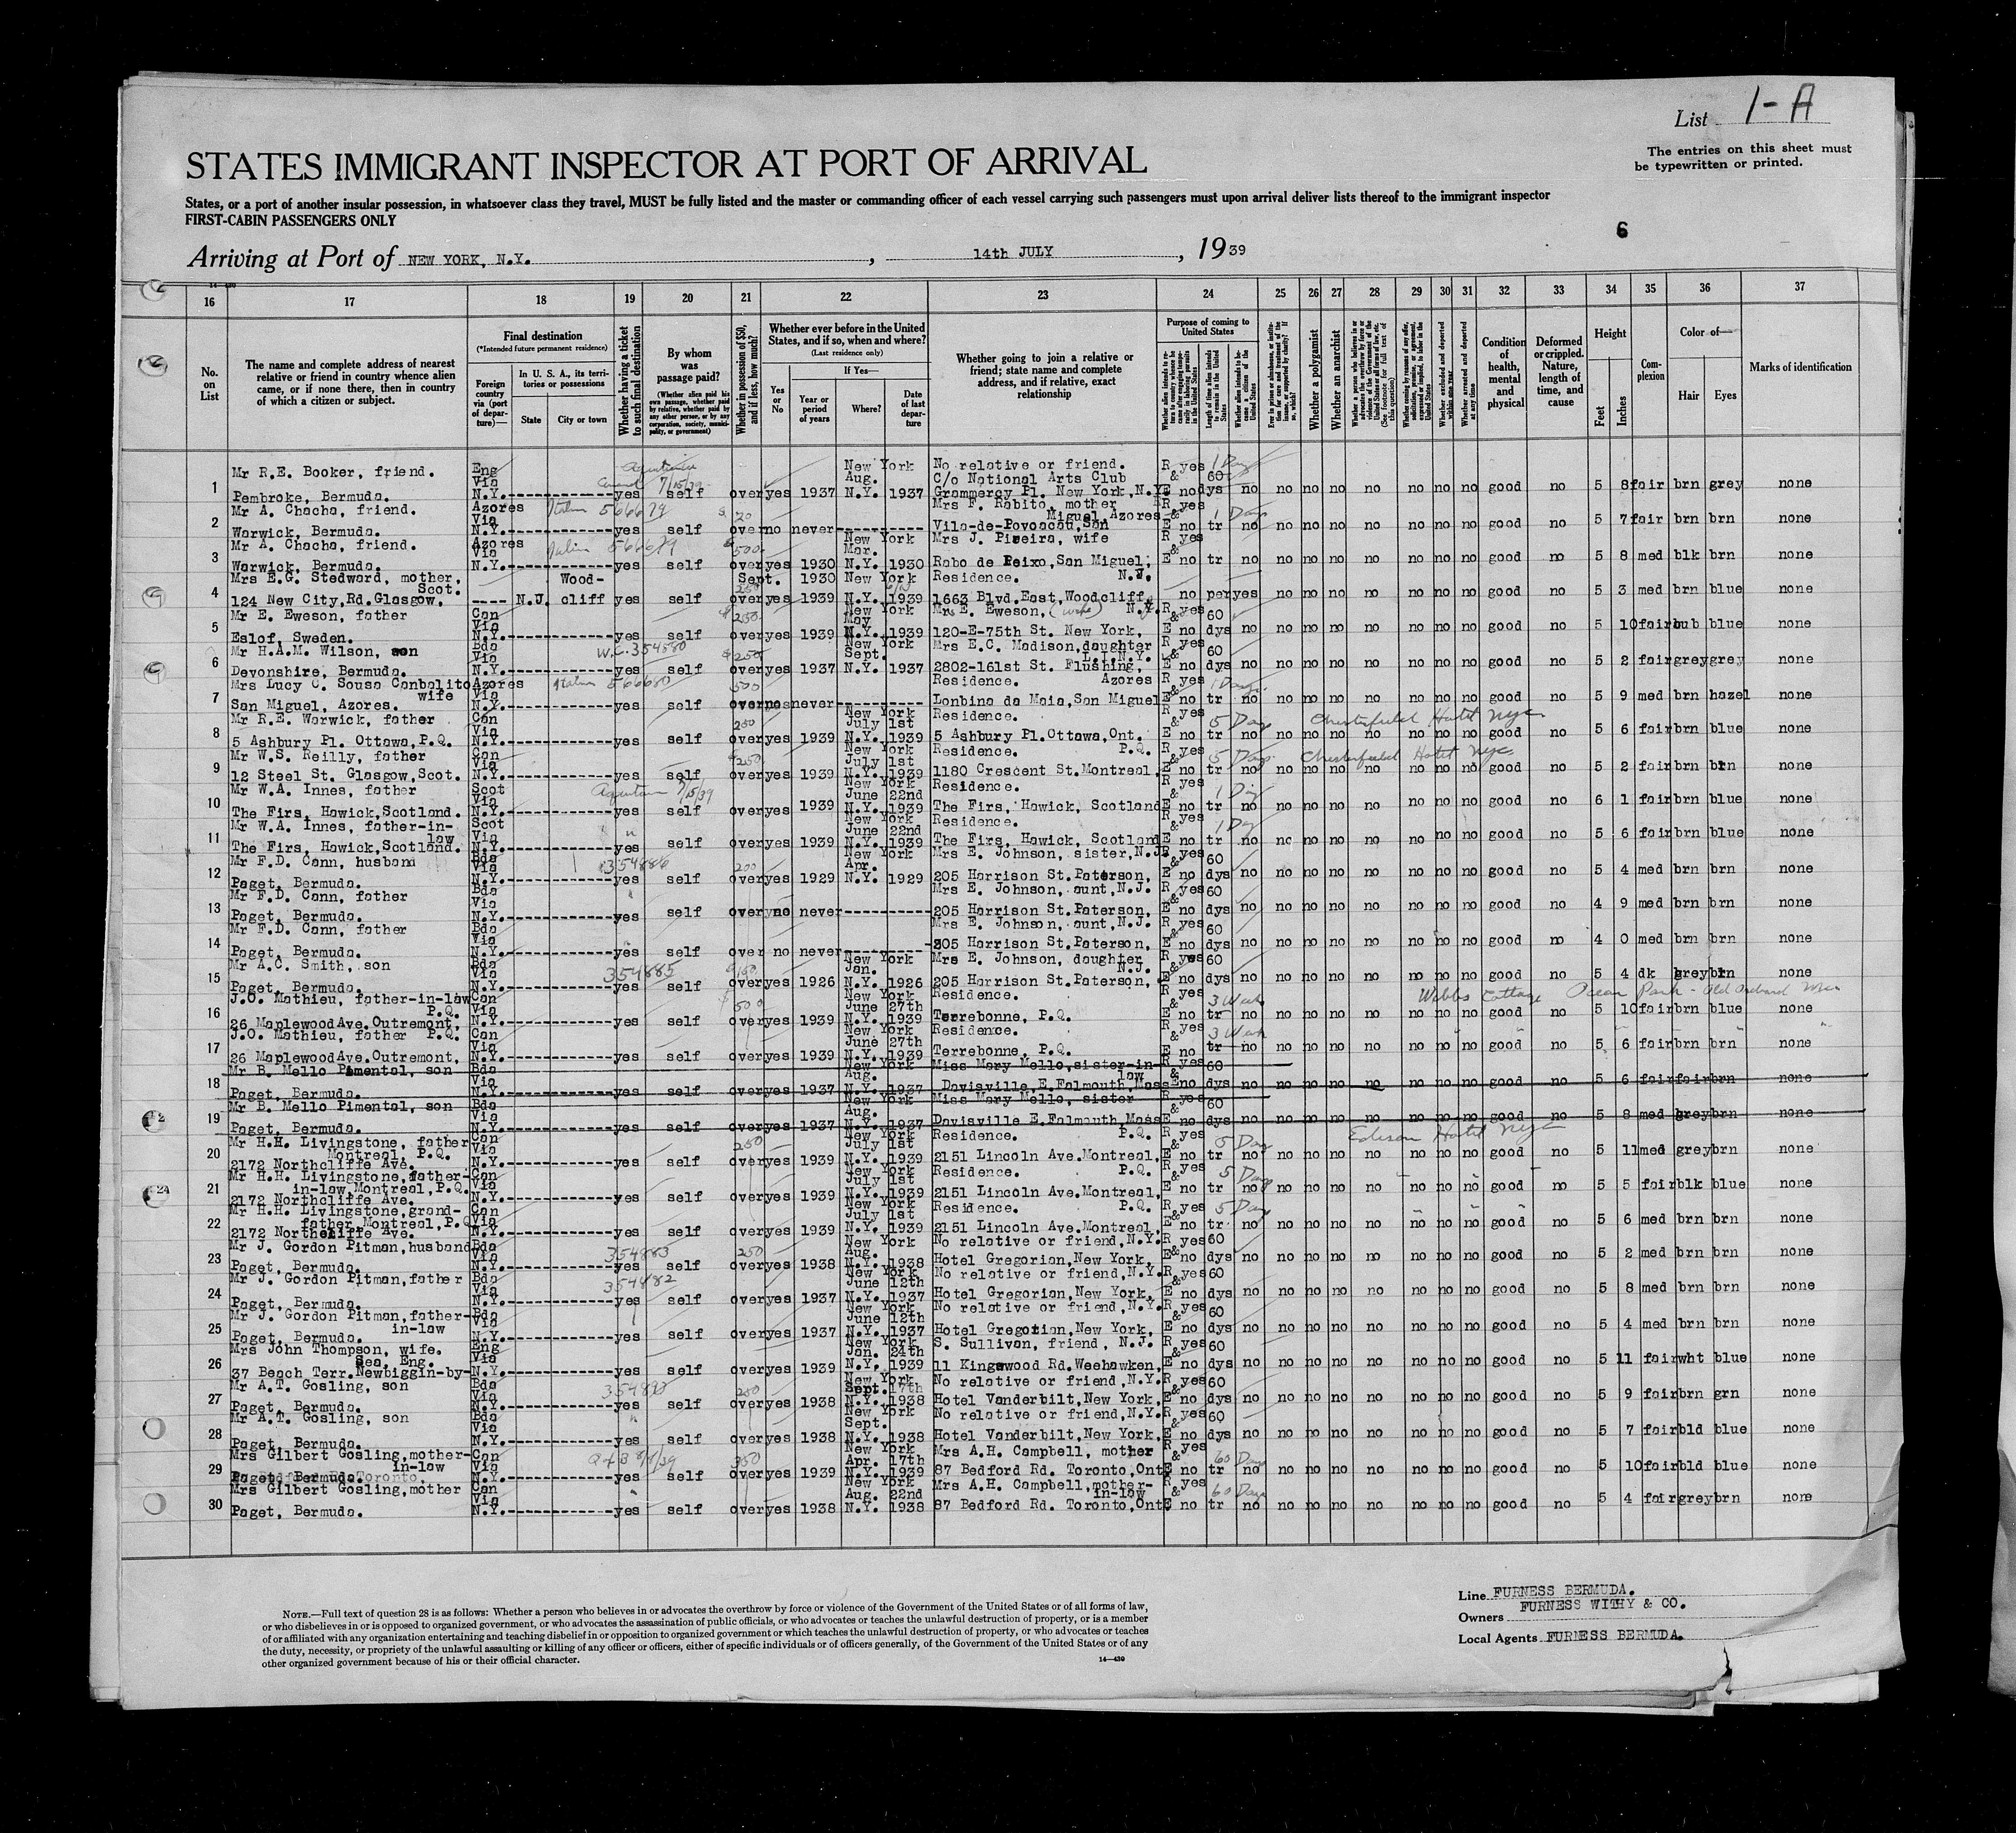 List 1-A
The entries on this sheet must
be typewritten or printed.
STATES IMMIGRANT INSPECTOR AT PORT OF ARRIVAL
States, or a port of another insular possession, in whatsoever class they travel, MUST be fully listed and the master or commanding officer of each vessel carrying such passengers must upon arrival deliver lists thereof to the immigrant inspector
FIRST-CABIN PASSENGERS ONLY
6
Arriving at Port of NEW YORK, N.Y. , 14th JULY , 1939
16 17 18 19 20 21 22 23 24 25 26 27 28 29 30 31 32 33 34 35 36 37
No. on List
The name and complete address of nearest relative or friend in country whence alien came, or if none there, then in country of which a citizen or subject.
Final destination
(*Intended future permanent residence)
Foreign country via (port of departure)—
In U. S. A., its territories or possessions
State
City or town
Whether having a ticket to such final destination
By whom was passage paid?
(Whether alien paid his own passage, whether paid by relative, whether paid by any other person, or by any corporation, society, municipality, or government)
Whether in possession of $50, and if less, how much?
Whether ever before in the United States, and if so, when and where?
(Last residence only)
Yes or No
If Yes—
Year or period of years
Where?
Date of last departure
Whether going to join a relative or friend; state name and complete address, and if relative, exact relationship
Purpose of coming to United States
Length of time alien intends to remain in the United States
Whether a polygamist
Whether an anarchist
Whether excluded and deported within one year
Whether arrested and deported at any time
Condition of health, mental and physical
Deformed or crippled. Nature, length of time, and cause
Height
Feet
Inches
Complexion
Color of—
Hair
Eyes
Marks of identification
1 Mr R.E. Booker, friend. Pembroke, Bermuda. Eng Via N.Y. yes self over yes 1937 New York Aug. N.Y. 1937 No relative or friend. C/o National Arts Club Grammercy Pl. New York, N.Y. R yes & E no 60 dys no no no no no no no no good no 5 8 fair brn grey none
2 Mr A. Chacha, friend. Warwick, Bermuda. Azores Via N.Y. yes self over no never Mrs F. Rabito, mother Miguel, Azores Vila-de-Povoacau, San R yes & E no tr no no no no no no no no good no 5 7 fair brn brn none
3 Mr A. Chacha, friend. Warwick, Bermuda. Azores Via N.Y. yes self over yes 1930 New York Mar. N.Y. 1930 Mrs J. Pireira, wife Rabo de Peixo, San Miguel, R yes & E no tr no no no no no no no no good no 5 8 med blk brn none
4 Mrs E.G. Stedward, mother, Scot. 124 New City, Rd. Glasgow, N.J. Wood-cliff yes self over yes Sept. 1930 1939 New York N.Y. 1939 Residence. N.J. 1663 Blvd. East, Woodcliff, no per yes no no no no no no no good no 5 3 med brn blue none
5 Mr E. Eweson, father Eslof, Sweden. Can Via N.Y. yes self over yes 1939 New York May N.Y. 1939 Mrs E. Eweson, (wife) N.Y. 120-E-75th St. New York, R yes & E no 60 dys no no no no no no no no good no 5 10 fair aub blue none
6 Mr H.A.M. Wilson, son Devonshire, Bermuda. Bda Via N.Y. W.C. 354880 yes self over yes 1937 New York Sept. N.Y. 1937 Mrs E.C. Madison, daughter L.I. N.Y. 2802-161st St. Flushing, R yes & E no 60 dys no no no no no no no no good no 5 2 fair grey grey none
7 Mrs Lucy C. Sousa Canbalito wife San Miguel, Azores. Azores Via N.Y. yes self over no never Residence. Azores Lonbina da Maia, San Miguel R yes & E no tr no no no no no no no no good no 5 9 med brn hazel none
8 Mr R.E. Warwick, father 5 Ashbury Pl. Ottawa, P.Q. Can Via N.Y. yes self over yes 1939 New York July 1st N.Y. 1939 Residence. 5 Ashbury Pl. Ottawa, Ont. R yes & E no tr 5 Days no Chesterfield Hotel NYC no no no no no no no good no 5 6 fair brn blue none
9 Mr W.S. Reilly, father 12 Steel St. Glasgow, Scot. Can Via N.Y. yes self over yes 1939 New York July 1st N.Y. 1939 Residence. P.Q. 1180 Crescent St. Montreal, R yes & E no tr 5 Days no Chesterfield Hotel NYC no no no no no no no good no 5 2 fair brn brn none
10 Mr W.A. Innes, father The Firs, Hawick, Scotland. Scot Via N.Y. yes self over yes 1939 New York June 22nd N.Y. 1939 Residence. The Firs, Hawick, Scotland R yes & E no tr 1 Day no no no no no no no no good no 6 1 fair brn blue none
11 Mr W.A. Innes, father-in-law The Firs, Hawick, Scotland. Scot Via N.Y. yes self over yes 1939 New York June 22nd N.Y. 1939 Residence. The Firs, Hawick, Scotland R yes & E no tr 1 Day no no no no no no no no good no 5 6 fair brn blue none
12 Mr F.D. Cann, husband Paget, Bermuda. Bda Via N.Y. 354886 yes self over yes 1929 New York Apr. N.Y. 1929 Mrs E. Johnson, sister, N.J. 205 Harrison St. Paterson, R yes & E no 60 dys no no no no no no no no good no 5 4 med brn brn none
13 Mr F.D. Cann, father Paget, Bermuda. Bda Via N.Y. yes self over no never Mrs E. Johnson, aunt, N.J. 205 Harrison St. Paterson, R yes & E no 60 dys no no no no no no no no good no 4 9 med brn brn none
14 Mr F.D. Cann, father Paget, Bermuda. Bda Via N.Y. yes self over no never Mrs E. Johnson, aunt, N.J. 205 Harrison St. Paterson, R yes & E no 60 dys no no no no no no no no good no 4 0 med brn brn none
15 Mr A.C. Smith, son Paget, Bermuda. Bda Via N.Y. 354885 yes self over yes 1926 New York Jan. N.Y. 1926 Mrs E. Johnson, daughter N.J. 205 Harrison St. Paterson, R yes & E no 60 dys no no no no no no no no good no 5 4 dk grey brn none
16 J.O. Mathieu, father-in-law P.Q. 26 Maplewood Ave. Outremont, Can Via N.Y. yes self over yes 1939 New York June 27th N.Y. 1939 Residence. Terrebonne, P.Q. R yes & E no tr no Webbs Cottage Ocean Park - Old Orchard no no no no no no no good no 5 10 fair brn blue none
17 J.O. Mathieu, father P.Q. 26 Maplewood Ave. Outremont, Can Via N.Y. yes self over yes 1939 New York June 27th N.Y. 1939 Residence. Terrebonne, P.Q. R yes & E no tr no no no no no no no no good no 5 6 fair brn brn none
18 Mr B. Mello Pimental, son Paget, Bermuda. Bda Via N.Y. yes self over yes 1937 New York Aug. N.Y. 1937 Miss Mary Mello, sister-in-law Davisville, E. Falmouth, Mass R yes & E no 60 dys no no no no no no no no good no 5 6 fair fair brn none
19 Mr B. Mello Pimental, son Paget, Bermuda. Bda Via N.Y. yes self over yes 1937 New York Aug. N.Y. 1937 Miss Mary Mello, sister Davisville E. Falmouth, Mass R yes & E no 60 dys no no no no no no no no good no 5 8 med grey brn none
20 Mr H.H. Livingstone, father Montreal, P.Q. 2172 Northcliffe Ave. Can Via N.Y. yes self over yes 1939 New York July 1st N.Y. 1939 Residence. P.Q. 2151 Lincoln Ave. Montreal, R yes & E no tr 5 Days no Edison Hotel NYC no no no no no no no good no 5 11 med grey brn none
21 Mr H.H. Livingstone, father-in-law, Montreal, P.Q. 2172 Northcliffe Ave. Can Via N.Y. yes self over yes 1939 New York July 1st N.Y. 1939 Residence. P.Q. 2151 Lincoln Ave. Montreal, R yes & E no tr 5 Days no no no no no no no no good no 5 5 fair blk blue none
22 Mr H.H. Livingstone, grand-father, Montreal, P.Q. 2172 Northcliffe Ave. Can Via N.Y. yes self over yes 1939 New York July 1st N.Y. 1939 Residence. P.Q. 2151 Lincoln Ave. Montreal, R yes & E no tr 5 Days no no no no no no no no good no 5 6 med brn brn none
23 Mr J. Gordon Pitman, husband Paget, Bermuda. Bda Via N.Y. 354883 yes self over yes 1938 New York Aug. N.Y. 1938 No relative or friend, N.Y. Hotel Gregorian, New York, R yes & E no 60 dys no no no no no no no no good no 5 2 med brn brn none
24 Mr J. Gordon Pitman, father Paget, Bermuda. Bda Via N.Y. 354482 yes self over yes 1937 New York June 12th N.Y. 1937 No relative or friend, N.Y. Hotel Gregorian, New York, R yes & E no 60 dys no no no no no no no no good no 5 8 med brn brn none
25 Mr J. Gordon Pitman, father-in-law Paget, Bermuda. Bda Via N.Y. yes self over yes 1937 New York June 12th N.Y. 1937 No relative or friend, N.Y. Hotel Gregorian, New York, R yes & E no 60 dys no no no no no no no no good no 5 4 med brn brn none
26 Mrs John Thompson, wife. Sea, Eng. 37 Beach Terr. Newbiggin-by- Eng Via N.Y. yes self over yes 1939 New York Jan. 24th N.Y. 1939 S. Sullivan, friend, N.J. 11 Kingswood Rd. Weehawken, R yes & E no 60 dys no no no no no no no no good no 5 11 fair wht blue none
27 Mr A.T. Gosling, son Paget, Bermuda. Bda Via N.Y. yes self over yes 1938 New York Sept. 17th N.Y. 1938 No relative or friend, N.Y. Hotel Vanderbilt, New York, R yes & E no 60 dys no no no no no no no no good no 5 9 fair brn grn none
28 Mr A.T. Gosling, son Paget, Bermuda. Bda Via N.Y. yes self over yes 1938 New York Sept. N.Y. 1938 No relative or friend, N.Y. Hotel Vanderbilt, New York, R yes & E no 60 dys no no no no no no no no good no 5 7 fair bld blue none
29 Mrs Gilbert Gosling, mother-in-law Paget, Bermuda. Can Via N.Y. yes self over yes 1939 New York Apr. 17th N.Y. 1939 Mrs A.H. Campbell, mother 87 Bedford Rd. Toronto, Ont. R yes & E no tr 60 Days no no no no no no no no good no 5 10 fair bld blue none
30 Mrs Gilbert Gosling, mother Paget, Bermuda. Can Via N.Y. yes self over yes 1938 New York Aug. 22nd N.Y. 1938 Mrs A.H. Campbell, mother-in-law 87 Bedford Rd. Toronto, Ont. R yes & E no tr 60 Days no no no no no no no no good no 5 4 fair grey brn none
NOTE.—Full text of question 28 is as follows: Whether a person who believes in or advocates the overthrow by force or violence of the Government of the United States or of all forms of law,
or who disbelieves in or is opposed to organized government, or who advocates the assassination of public officials, or who advocates or teaches the unlawful destruction of property, or is a member
of or affiliated with any organization entertaining and teaching disbelief in or opposition to organized government or which teaches the unlawful destruction of property, or who advocates or teaches
the duty, necessity, or propriety of the unlawful assaulting or killing of any officer or officers, either of specific individuals or of officers generally, of the Government of the United States or of any
other organized government because of his or their official character.
14—430
Line FURNESS BERMUDA.
Owners FURNESS WITHY & CO.
Local Agents FURNESS BERMUDA.